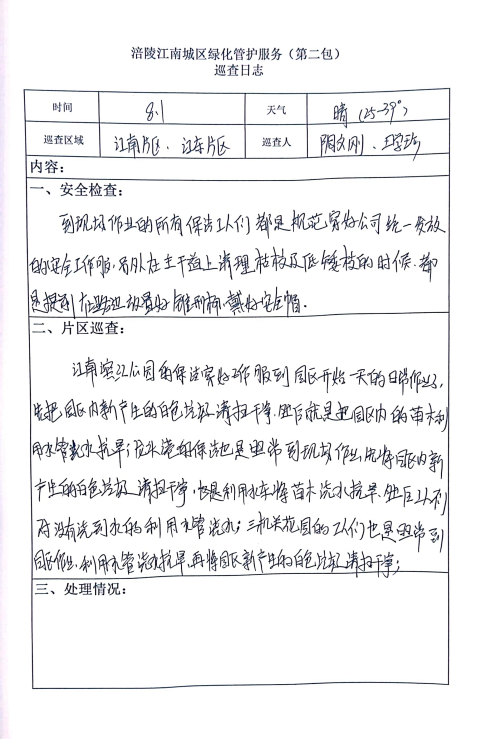 涪陵江南城区绿化管护服务（第二包）
巡查日志
时间 8.1 天气 晴（25-39°）
巡查区域 江南片区、江东片区 巡查人 阳文刚、
内容：
一、安全检查：
到现场作业的所有保洁工人们都是规范穿好公司统一发放
的安全工作服，另外在主干道上清理枯枝及低矮枝的时候，都
是提前在路边放置好锥形桶，戴好安全帽。
二、片区巡查：
江南滨江公园的保洁穿好工作服到园区开始一天的日常作业，
先把园区内新产生的白色垃圾清扫干净，然后就是把园区内的苗木利
用水管浇水抗旱；的保洁也是照常到现场作业，先将园区内新
产生的白色垃圾清扫干净，也是利用水车将苗木浇水抗旱，然后工人们
对没有浇到水的利用水管浇水；三机关花园的工人们也是照常到
园区作业，利用水管浇水抗旱，再将园区新产生的白色垃圾清扫干净；
三、处理情况：